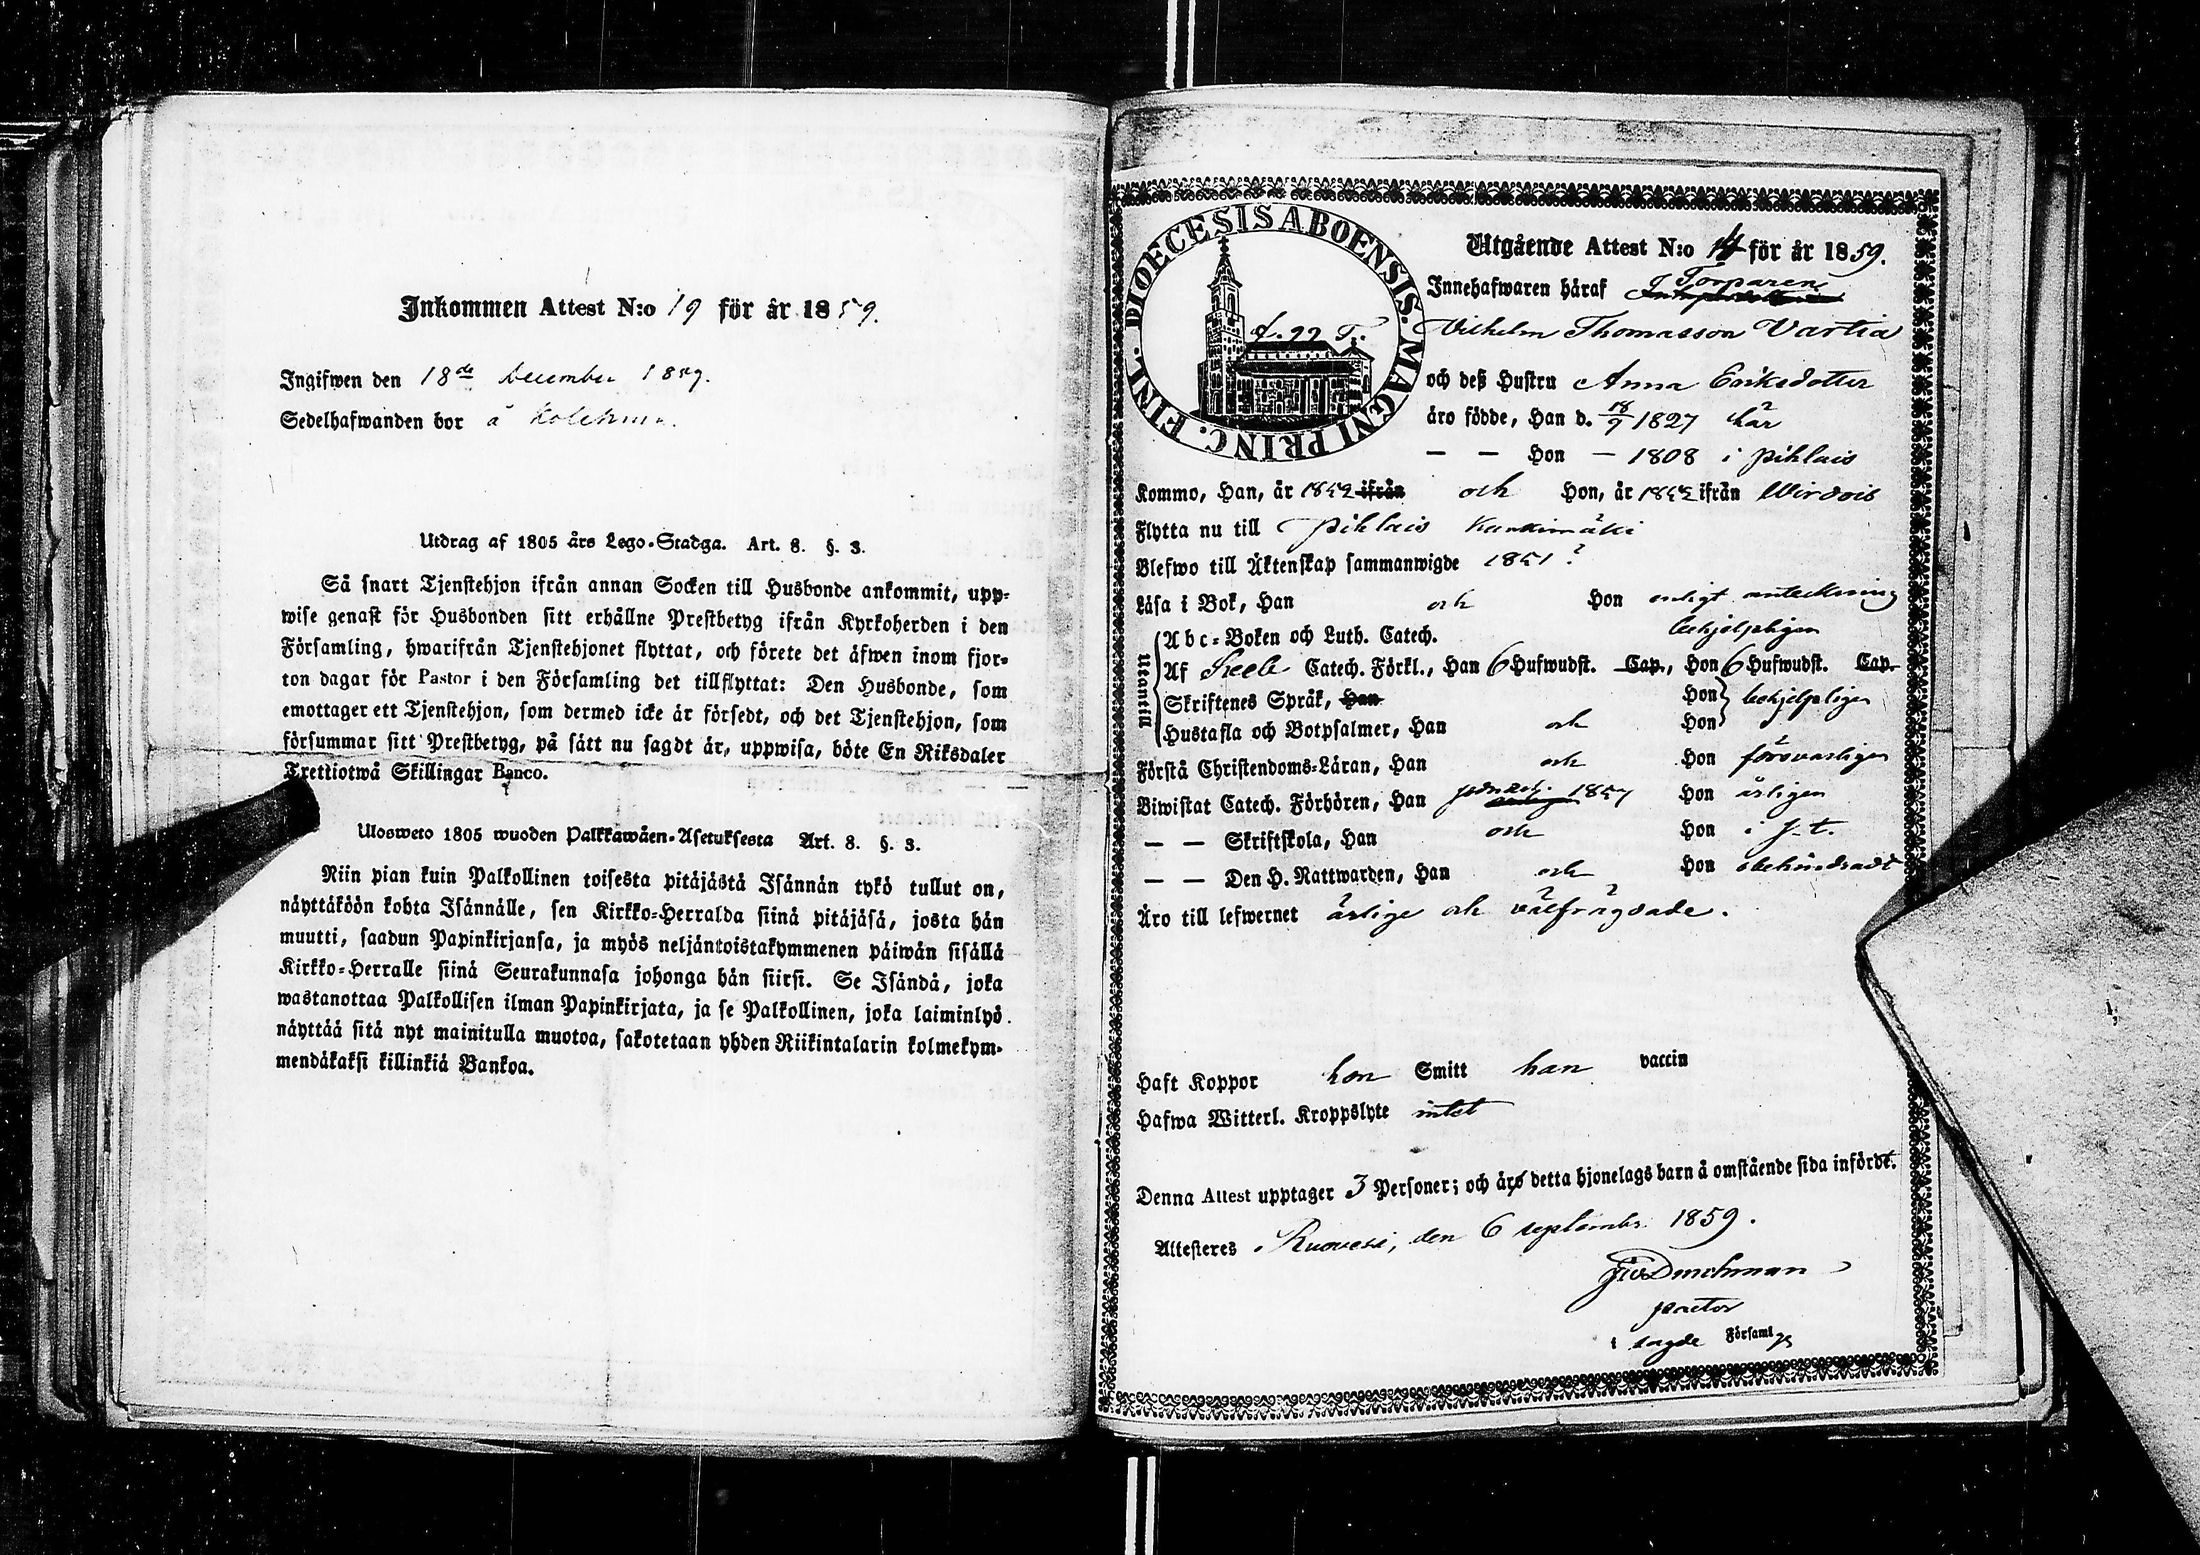 Inkommen Attest N:o 19 för år 1859.
Ingifwen den 18de December 1859.
Sedelhafwanden bor å
Utdrag af 1805 års Lego-Stadga. Art. 8. §. 3.
Så snart Tjenstehjon ifrån annan Socken till Husbonde ankommit, upp-
wise genast för Husbonden sitt erhållne Prestbetyg ifrån Kyrkoherden i den
Församling, hwarifrån Tjenstehjonet flyttat, och förete det äfwen inom fjor-
ton dagar för Pastor i den Församling det tillflyttat: Den Husbonde, som
emottager ett Tjenstehjon, som dermed icke är försedt, och det Tjenstehjon, som
försummar sitt Prestbetyg, på sätt nu sagdt är, uppwisa, böte En Riksdaler
Trettiotwå Skillingar Banco.
Ulosweto 1805 wuoden Palkkawäen-Asetuksesta Art. 8. §. 3.
Niin pian kuin Palkollinen toisesta pitäjästä Isännän tykö tullut on,
näyttäköön kohta Isännälle, sen Kirkko-Herralda siinä pitäjäsä, josta hän
muutti, saadun Papinkirjansa, ja myös neljäntoistakymmenen päiwän sisällä
Kirkko-Herralle siinä Seurakunnasa johonga hän siirsi. Se Isändä, joka
wastanottaa Palkollisen ilman Papinkirjata, ja se Palkollinen, joka laiminlyö
näyttää sitä nyt mainitulla muotoa, sakotetaan yhden Riikintalarin kolmekym-
mendäkaksi killinkiä Bankoa.
DIOECESIS ABOENSIS. MAGNI PRINC. FINL.
Utgående Attest N:o 14 för år 1859.
Innehafwaren häraf Torparen
Vilhelm Thomasson Vartia
och deß Hustru Anna Eriksdotter
äro födde, Han d. 18/9 1827 här
— — Hon — 1808 i Pihlais
Kommo, Han, år 1852 ifrån och Hon, år 1852 ifrån Wirdois
Flytta nu till Pihlais
Blefwo till Äktenskap sammanwigde 1851?
Läsa i Bok, Han och Hon enligt anteckning
behjelpligen
Utantill
Abc-Boken och Luth. Catech.
Af Catech. Förkl., Han 6 Hufwudst. Cap., Hon 6 Hufwudst. Cap.
Skriftenes Språk, Han Hon behjelpligen
Hustafla och Botpsalmer, Han och Hon
Förstå Christendoms-Läran, Han och Hon försvarligen
Biwistat Catech. Förhören, Han 1857 Hon årligen
— — Skriftskola, Han och Hon i
— — Den H. Nattwarden, Han och Hon obehindradt
Äro till lefwernet ärlige och välfrägdade.
Haft Koppor hon Smitt han vaccin
Hafwa Witterl. Kroppslyte intet
Denna Attest upptager 3 Personer; och äro detta hjonelags barn å omstående sida införde.
Attesteres i Ruovesi, den 6 september 1859.
Durchman
pastor
i sagde Församl.